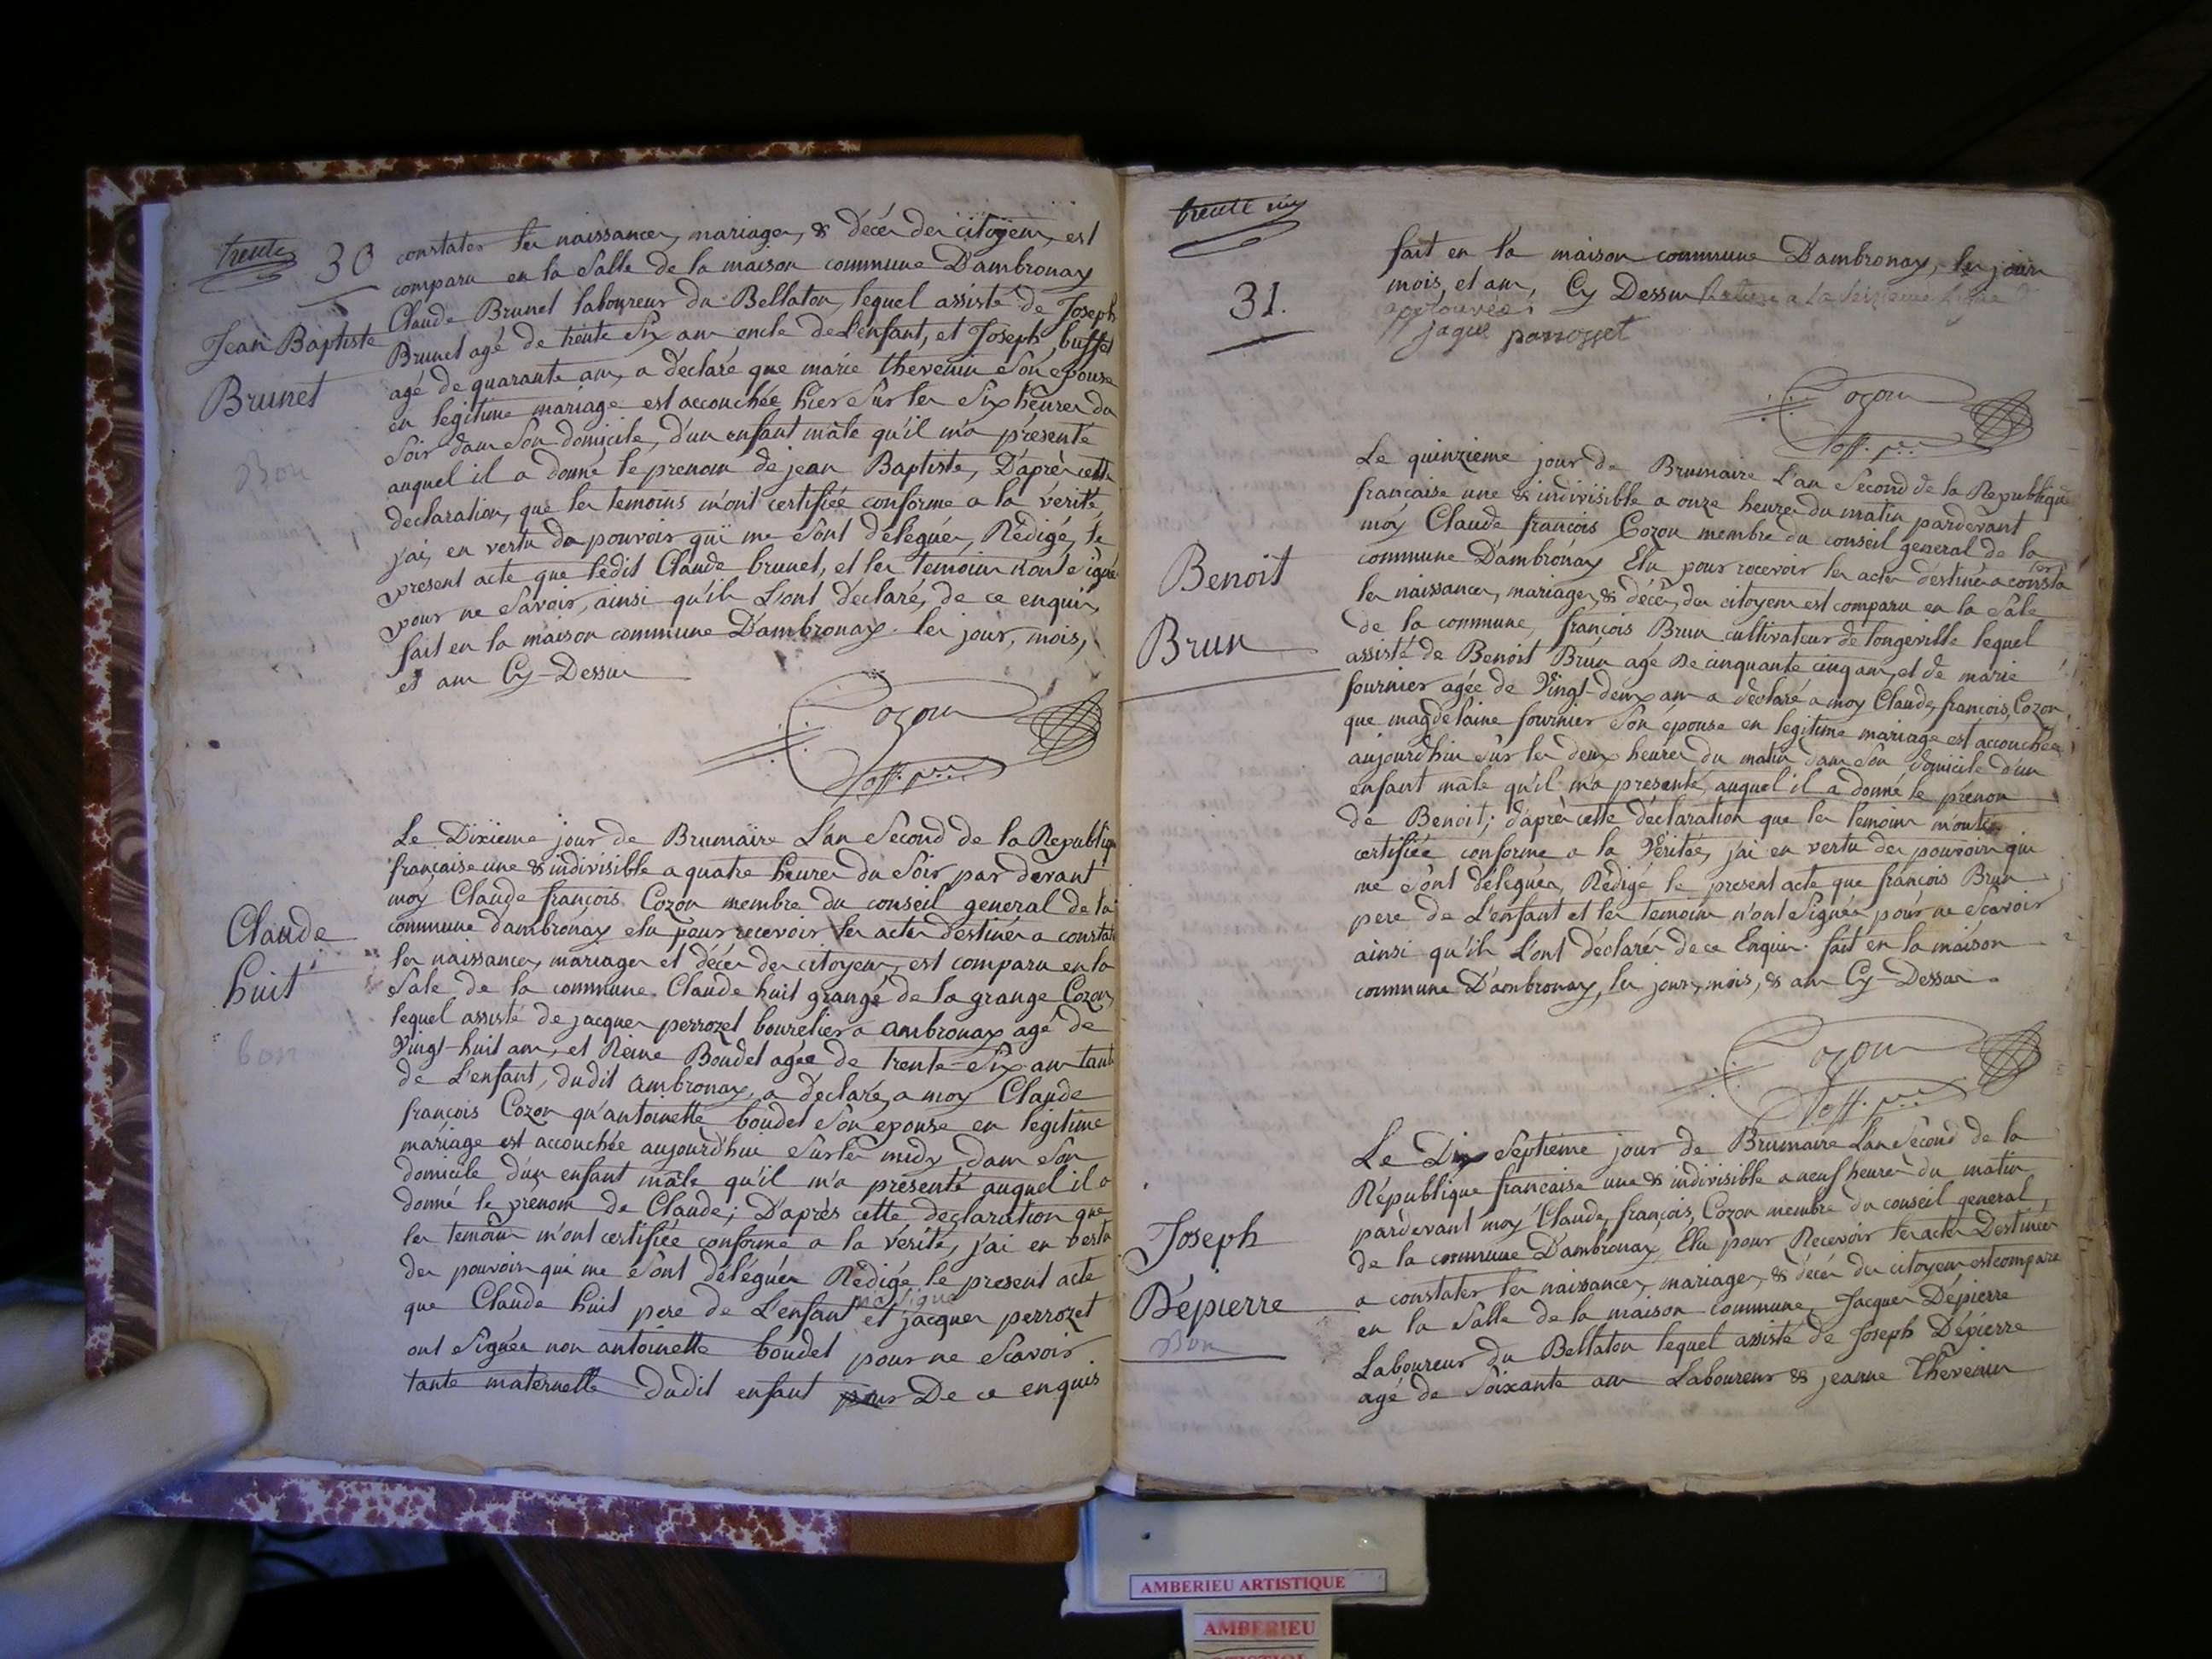 trente
30
constater les naissances, mariages, & décès des citoÿens, est
comparu en la Salle de la maison commune D'ambronay
Claude Brunet laboureur du Bellaton, lequel assisté de Joseph
Brunet agé de trente Six ans oncle de L'enfant, et Joseph buffet
agé de quarante ans, a déclaré que marie thevenin Son epouse
en legitime mariage est accouchée hier Sur les Six heures du
Soir dans Son domicile, d'un enfant mâle qu'il m'a présenté
auquel il a donné le prenom de jean Baptiste, D'après cette
declaration, que les temoins m'ont certifiée conforme a la vérité,
j'ai, en vertu du pouvoir qui me Sont délégués, Rédigé, le
present acte que ledit Claude brunet, et les temoins n'ont Signé
pour ne Savoir, ainsi qu'ils L'ont déclaré, de ce enquis,
fait en la maison commune D'ambronay les jour, mois,
et ans Cy-Dessus
Jean Baptiste
Brunet
Bon
Cozon
off. p.
Le Dixieme jour de Brumaire L'an Second de la Republiq
française une & indivisible a quatre heures du Soir par devant
moy Claude françois Cozon membre du conseil general de la
commune dambronay elu pour recevoir les actes destinés a constater
les naissances, mariages et décès des citoyens, est comparu en la
Sale de la commune Claude huit grangé de la grange Cozon,
lequel assisté de jacques perrozet bourelier a ambronay agé de
Vingt-huit ans, et Reine Boudet agée de trente-Six ans tante
de L'enfant, dudit ambronay, a déclaré, a moy Claude
françois Cozon qu'antoinette boudet Son epouse en legitime
mariage est accouchée aujourd'hui Sur les midy dans Son
domicile d'un enfant mâle qu'il m'a présenté auquel il a
donné le prenom de Claude; D'après cette declaration que
les temoins m'ont certifiée conforme a la vérité, j'ai en vertu
des pouvoirs qui me Sont délégués Rédigé le present acte
que Claude huit pere de L'enfant et jacques perrozet
ont Signés non antoinette boudet pour ne Scavoir
tante maternelle dudit enfant pour De ce enquis
Claude
huit
bon
trente un
31.
fait en la maison commune D'ambronay, les jour
mois, et ans, Cy Dessus
approuvés
jaque parrosset
Cozon
off. p.
Le quinzieme jour de Brumaire L'an Second de la Republique
française une & indivisible a onze heures du matin pardevant
moy Claude françois Cozon membre du conseil general de la
commune D'ambronay Elu pour recevoir les actes destinés a consta
ter
les naissances, mariages, & décès, des citoyens est comparu en la Sale
de la commune, françois Brun cultivateur de longeville lequel
assisté de Benoit Brun agé De cinquante cinq ans, et de marie
fournier agée de Vingt-deux ans a déclaré a moy Claude, françois, Cozon,
que magdelaine fournier Son épouse en legitime mariage est accouchée
aujourd'hui Sur les deux heures du matin dans Son domicile d'un
enfant mâle qu'il m'a présenté, auquel il a donné le prenon
de Benoit; d'après cette déclaration que les temoins m'ont
certifiée conforme a la Véritée, j'ai en vertu des pouvoirs qui
me Sont délégués, Rédigé le present acte que françois Brun
pere de L'enfant et les temoins n'ont Signés pour ne Scavoir
ainsi qu'ils L'ont déclarés de ce Enquis. fait en la maison
commune D'ambronay, les jour, mois, & ans Cy-Dessus.
Benoit
Brun
Cozon
off. p.
Le Dix Septieme jour de Brumaire L'an Second de la
République francaise une & indivisible a neuf heures du matin
pardevant moy Claude, françois, Cozon membre du conseil general,
de la commune D'ambronay, Elu pour Recevoir les actes Destinés
a constater les naissances, mariages, & décès des citoyens est comparu
en la Salle de la maison commune, Jacques Dépierre
Laboureur du Bellaton lequel assisté de Joseph Dépierre
agé de Soixante ans Laboureur & jeanne Thevenin
Joseph
Dépierre
Bon
AMBERIEU ARTISTIQUE
AMBERIEU